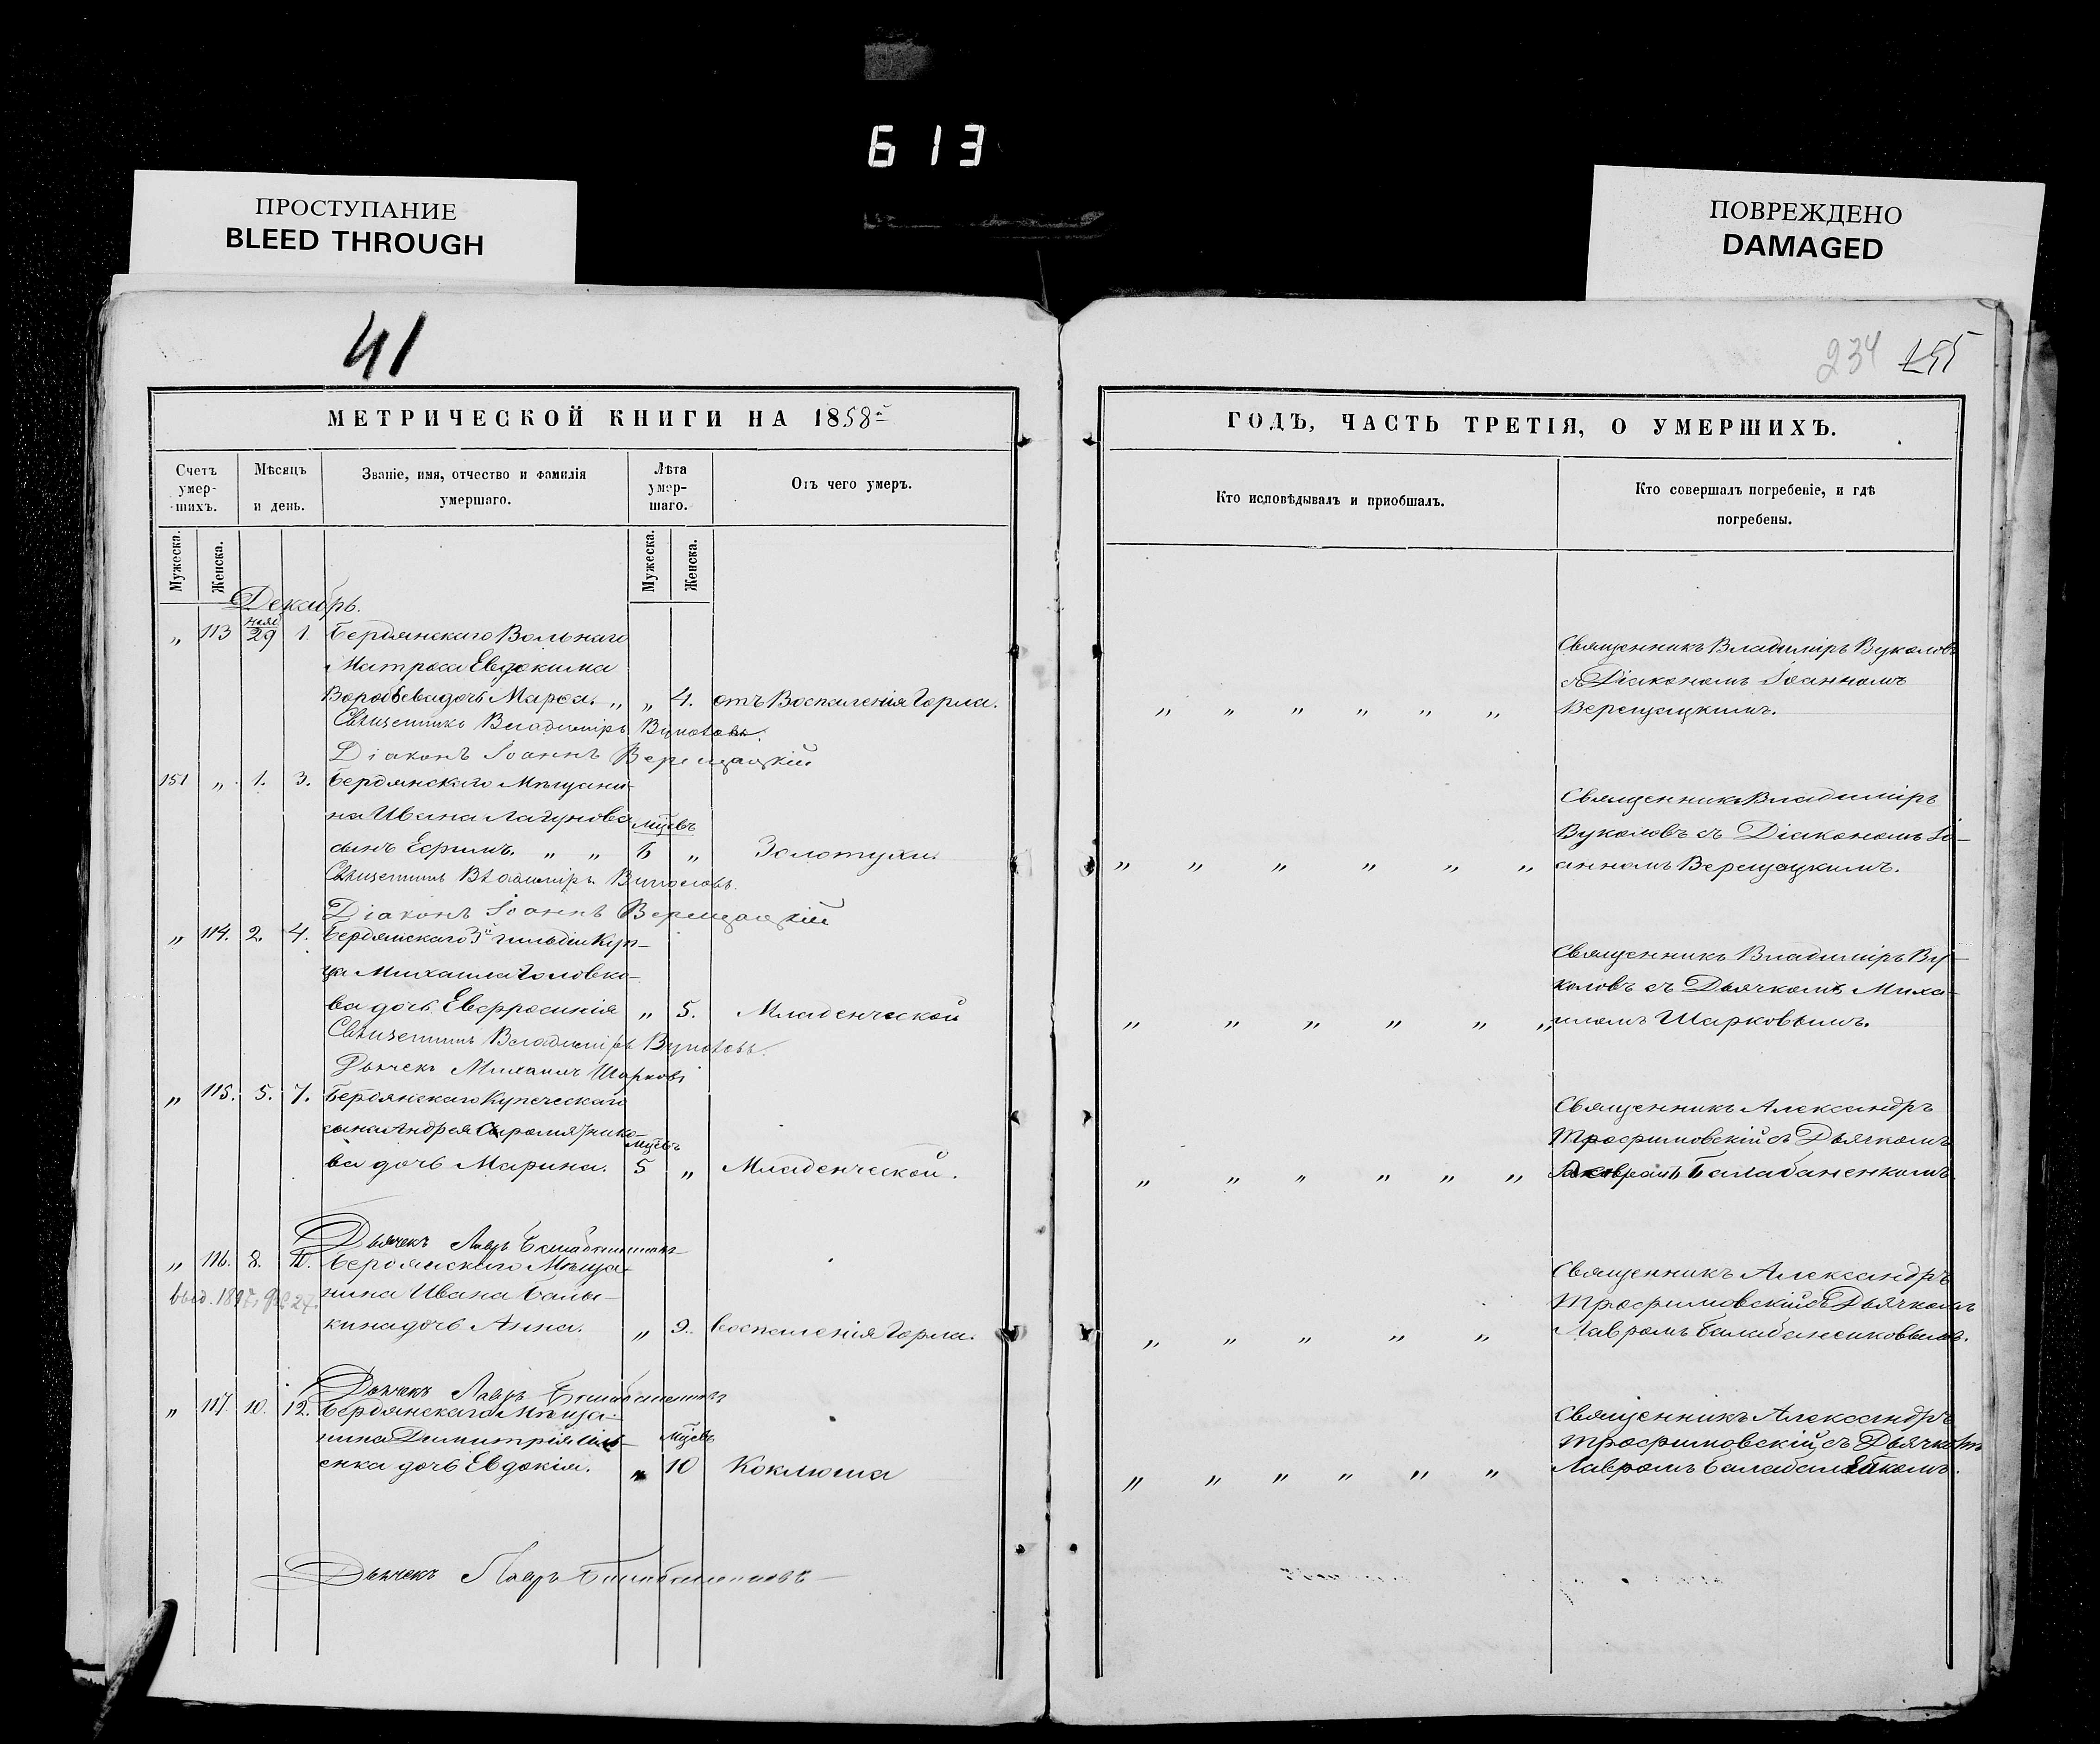 613
ПРОСТУПАНИЕ
BLEED THROUGH
ПОВРЕЖДЕНО
DAMAGED
41
234 155
МЕТРИЧЕСКОЙ КНИГИ НА 1858й
ГОДЪ, ЧАСТЬ ТРЕТІЯ, О УМЕРШИХЪ.
Счетъ умер-шихъ.
Мѣсяцъ и день.
Званіе, имя, отчество и фамилія умершаго.
Лѣта умер-шаго.
Отъ чего умеръ.
Кто исповѣдывалъ и пріобщалъ.
Кто совершалъ погребеніе, и гдѣ погребены.
Мужеска. Женска.
Мужеска. Женска.
Декабрь.
„ 113 29 1. Бердянскаго Вольнаго
Матроса Евдокима
Воробьева дочь Марѳа. „ „ 4. отъ Воспаленія Горла. „ „ „ „ „ „
Священникъ Владиміръ Вуколовъ
съ Діакономъ Іоанномъ
Верещацкимъ.
Священникъ Владиміръ Вуколовъ.
Діаконъ Іоаннъ Верещацкій
151 „ 1. 3. Бердянскаго Мѣщани-
на Ивана Лагунова мцевъ
сынъ Ефимъ. „ „ 6 „ Золотухи. „ „ „ „ „ „
Священникъ Владиміръ
Вуколовъ съ Діакономъ Іо-
анномъ Верещацкимъ.
Священникъ Владиміръ Вуколовъ.
Діаконъ Іоаннъ Верещацкій
„ 114. 2. 4. Бердянскаго 3й гильдіи Куп-
ца Михаила Головко-
ва дочь Евфросинія „ 5. Младенческой „ „ „ „ „ „
Священникъ Владиміръ Ву-
коловъ съ Дьячкомъ Миха-
иломъ Шарковымъ.
Священникъ Владиміръ Вуколовъ.
Дьячекъ Михаилъ Шарковъ
„ 115. 5. 7. Бердянскаго Купеческаго
сына Андрея Сыромятнико- мцевъ
ва дочь Марина. 5 „ Младенческой. „ „ „ „ „ „
Священникъ Александръ
Трофимовскій съ Дьячкомъ
Лавромъ Балабаненкомъ.
Дьячекъ Лавръ
„ 116. 8. 10. Бердянскаго Мѣща-
нина Ивана Балы-
кина дочь Анна. „ 9. воспаленія Горла. „ „ „ „ „
Священникъ Александръ
Трофимовскій съ Дьячкомъ
Лавромъ Балабаненковымъ.
Дьячекъ Лавръ
„ 117. 10. 12. Бердянскаго Мѣща-
нина Димитрія мцевъ
енка дочь Евдокія. „ 10 Коклюша „ „ „ „ „ „
Священникъ Александръ
Трофимовскій съ Дьячкомъ
Лавромъ Балабаненкомъ.
Дьячекъ Лавръ